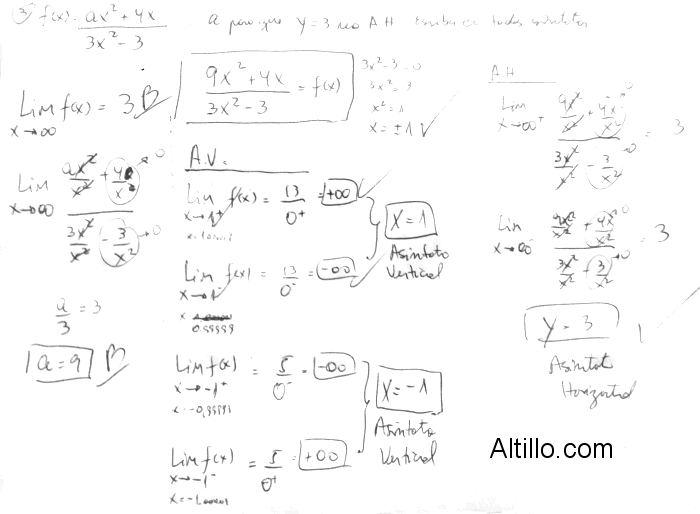 3) f(x) = ax² + 4x / 3x² - 3
a para que y = 3 sea A.H
todas asíntotas
Lim f(x) = 3
x→∞
Lim ax²/x² + 4x/x² →0 / 3x²/x² - 3/x² →0
x→∞
a/3 = 3
a = 9
9x² + 4x / 3x² - 3 = f(x)
3x² - 3 = 0
3x² = 3
x² = 1
x = ±1
A.V.
Lim f(x) = 13/0⁺ = +∞
x→1⁺
Lim f(x) = 13/0⁻ = -∞
x→1⁻
x 0.99999
X = 1
Asíntota
Vertical
Lim f(x) = 5/0⁻ = -∞
x→-1⁺
x = -0,99999
Lim f(x) = 5/0⁺ = +∞
x→-1⁻
X = -1
Asíntota
Vertical
A.H
Lim 9x²/x² + 4x/x² →0 / 3x²/x² - 3/x² →0 = 3
x→∞⁺
Lim 9x²/x² + 4x/x² →0 / 3x²/x² - 3/x² →0 = 3
x→∞⁻
Y = 3
Asíntota
Horizontal
Altillo.com